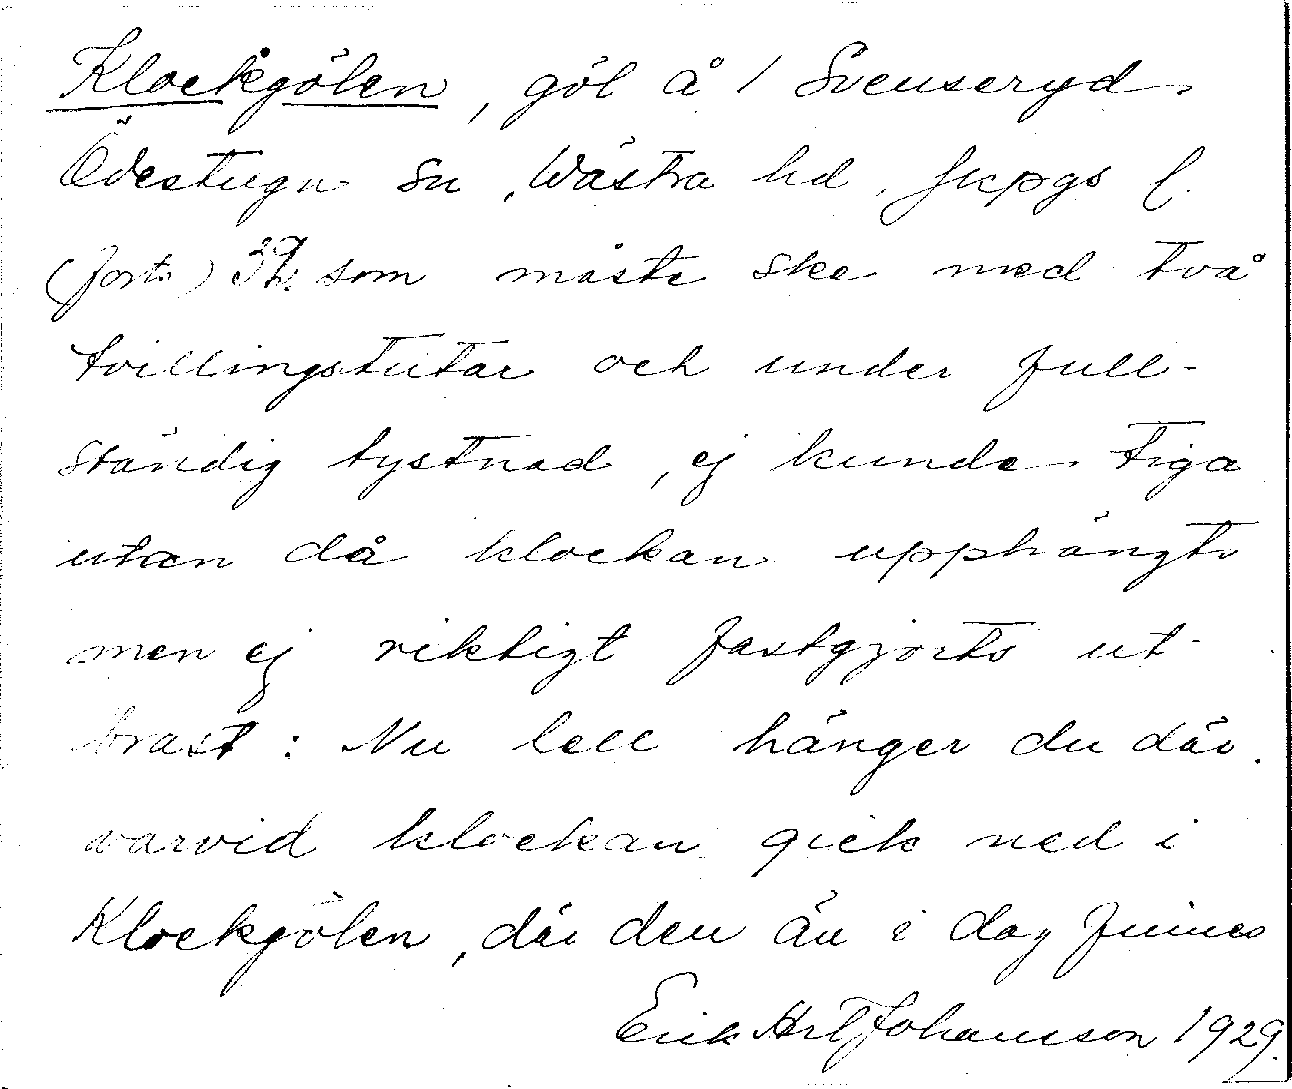 Klockgölen, göl å 1 Svenseryd.
Ödestugu sn, Wästra hd, Jkpgs l.
(forts) som måste ske med två
tvillingstutar och under full-
ständig tystnad, ej kunde tiga
utan då klockan upphängts
men ej riktigt fastgjorts ut-
brast: Nu lell hänger du där.
varvid klockan gick ned i
Klockgölen, där den än i dag finnes
Erik Johansson 1929.